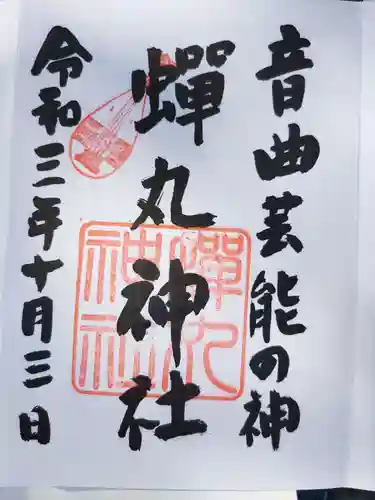 音曲芸能の神
蝉丸神社
令和三年十月三日
蟬丸
神社